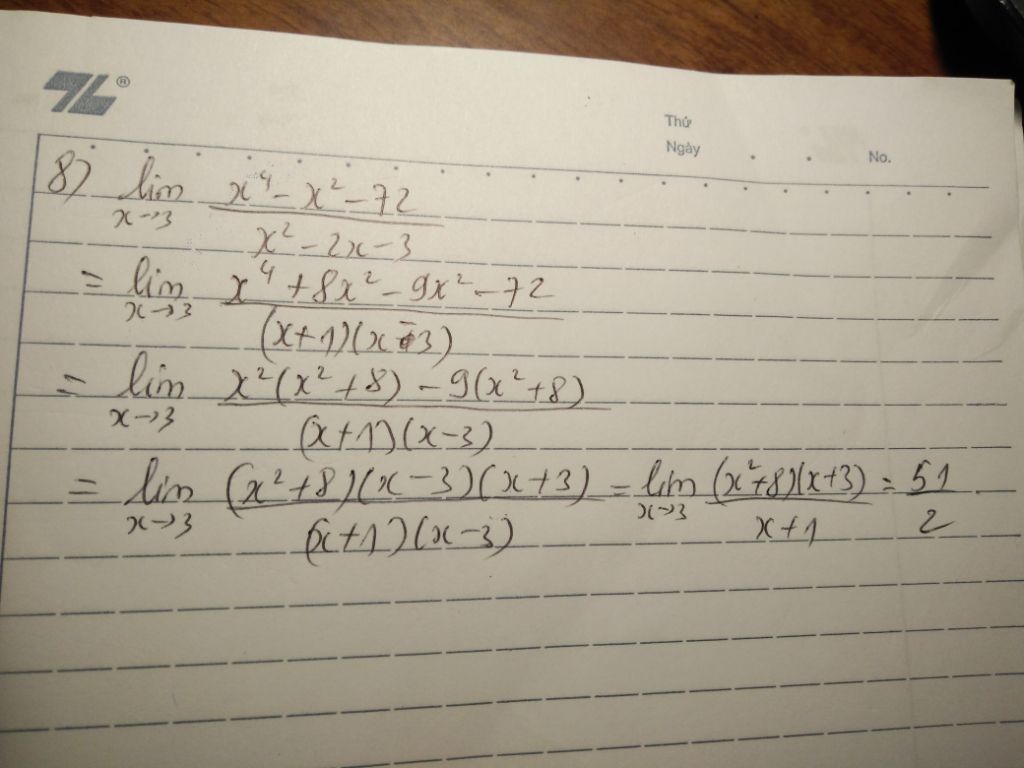 ®
Thứ
Ngày
No.
8) lim x→3 (x⁴ - x² - 72)/(x² - 2x - 3)
= lim x→3 (x⁴ + 8x² - 9x² - 72)/((x+1)(x-3))
= lim x→3 (x²(x² + 8) - 9(x² + 8))/((x+1)(x-3))
= lim x→3 ((x² + 8)(x - 3)(x + 3))/((x+1)(x-3)) = lim x→3 ((x²+8)(x+3))/(x+1) = 51/2.